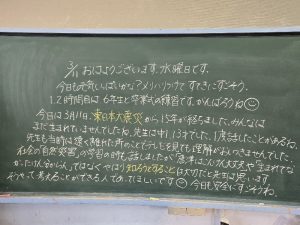 3/11 おはようございます。水曜日です。
今日も元気いっぱいかな？メリハリつけてすごしましょう。
1.2時間目は6年生と卒業式の練習です。がんばろうね
今日は3月11日。東日本大震災から15年が経ちました。みんなは
まだ生まれていませんでしたね。先生は中1、13才でした。1度話したことがあるね。
先生も当時は遠く離れた所のことでテレビを見ても理解がおいつきませんでした。
社会の「自然災害」の学習の時も話しましたが「高津は大丈夫」や「生まれてな
かったし分からん」ではなくやはり知ろうとすることは大切だと先生は思います。
そうやって考えることができる人であってほしいです 今日も安全にすごそうね。